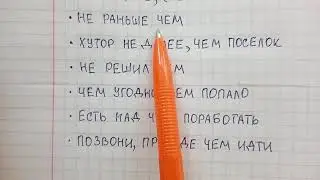 • НЕ РАНЬШЕ ЧЕМ
• ХУТОР НЕ ДАЛЕЕ, ЧЕМ ПОСЕЛОК
• НЕ РЕШИЛ ЧЕМ
• ЧЕМ УГОДНО ЧЕМ ПОПАЛО
• ЕСТЬ НАД ЧЕМ ПОРАБОТАТЬ
• ПОЗВОНИ, ПРЕЖДЕ ЧЕМ ИДТИ